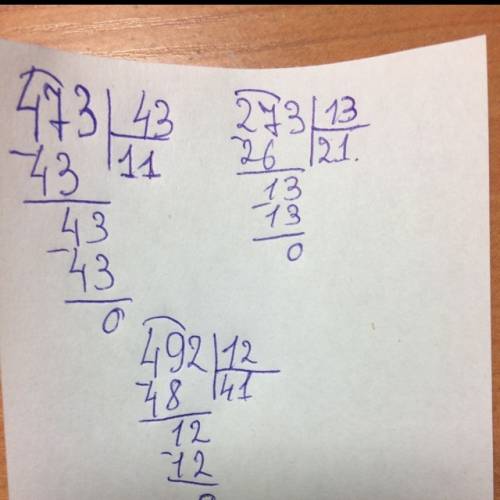 473 | 43
- 43 | 11
43
- 43
0
273 | 13
- 26 | 21.
13
- 13
0
492 | 12
- 48 | 41
12
- 12
0